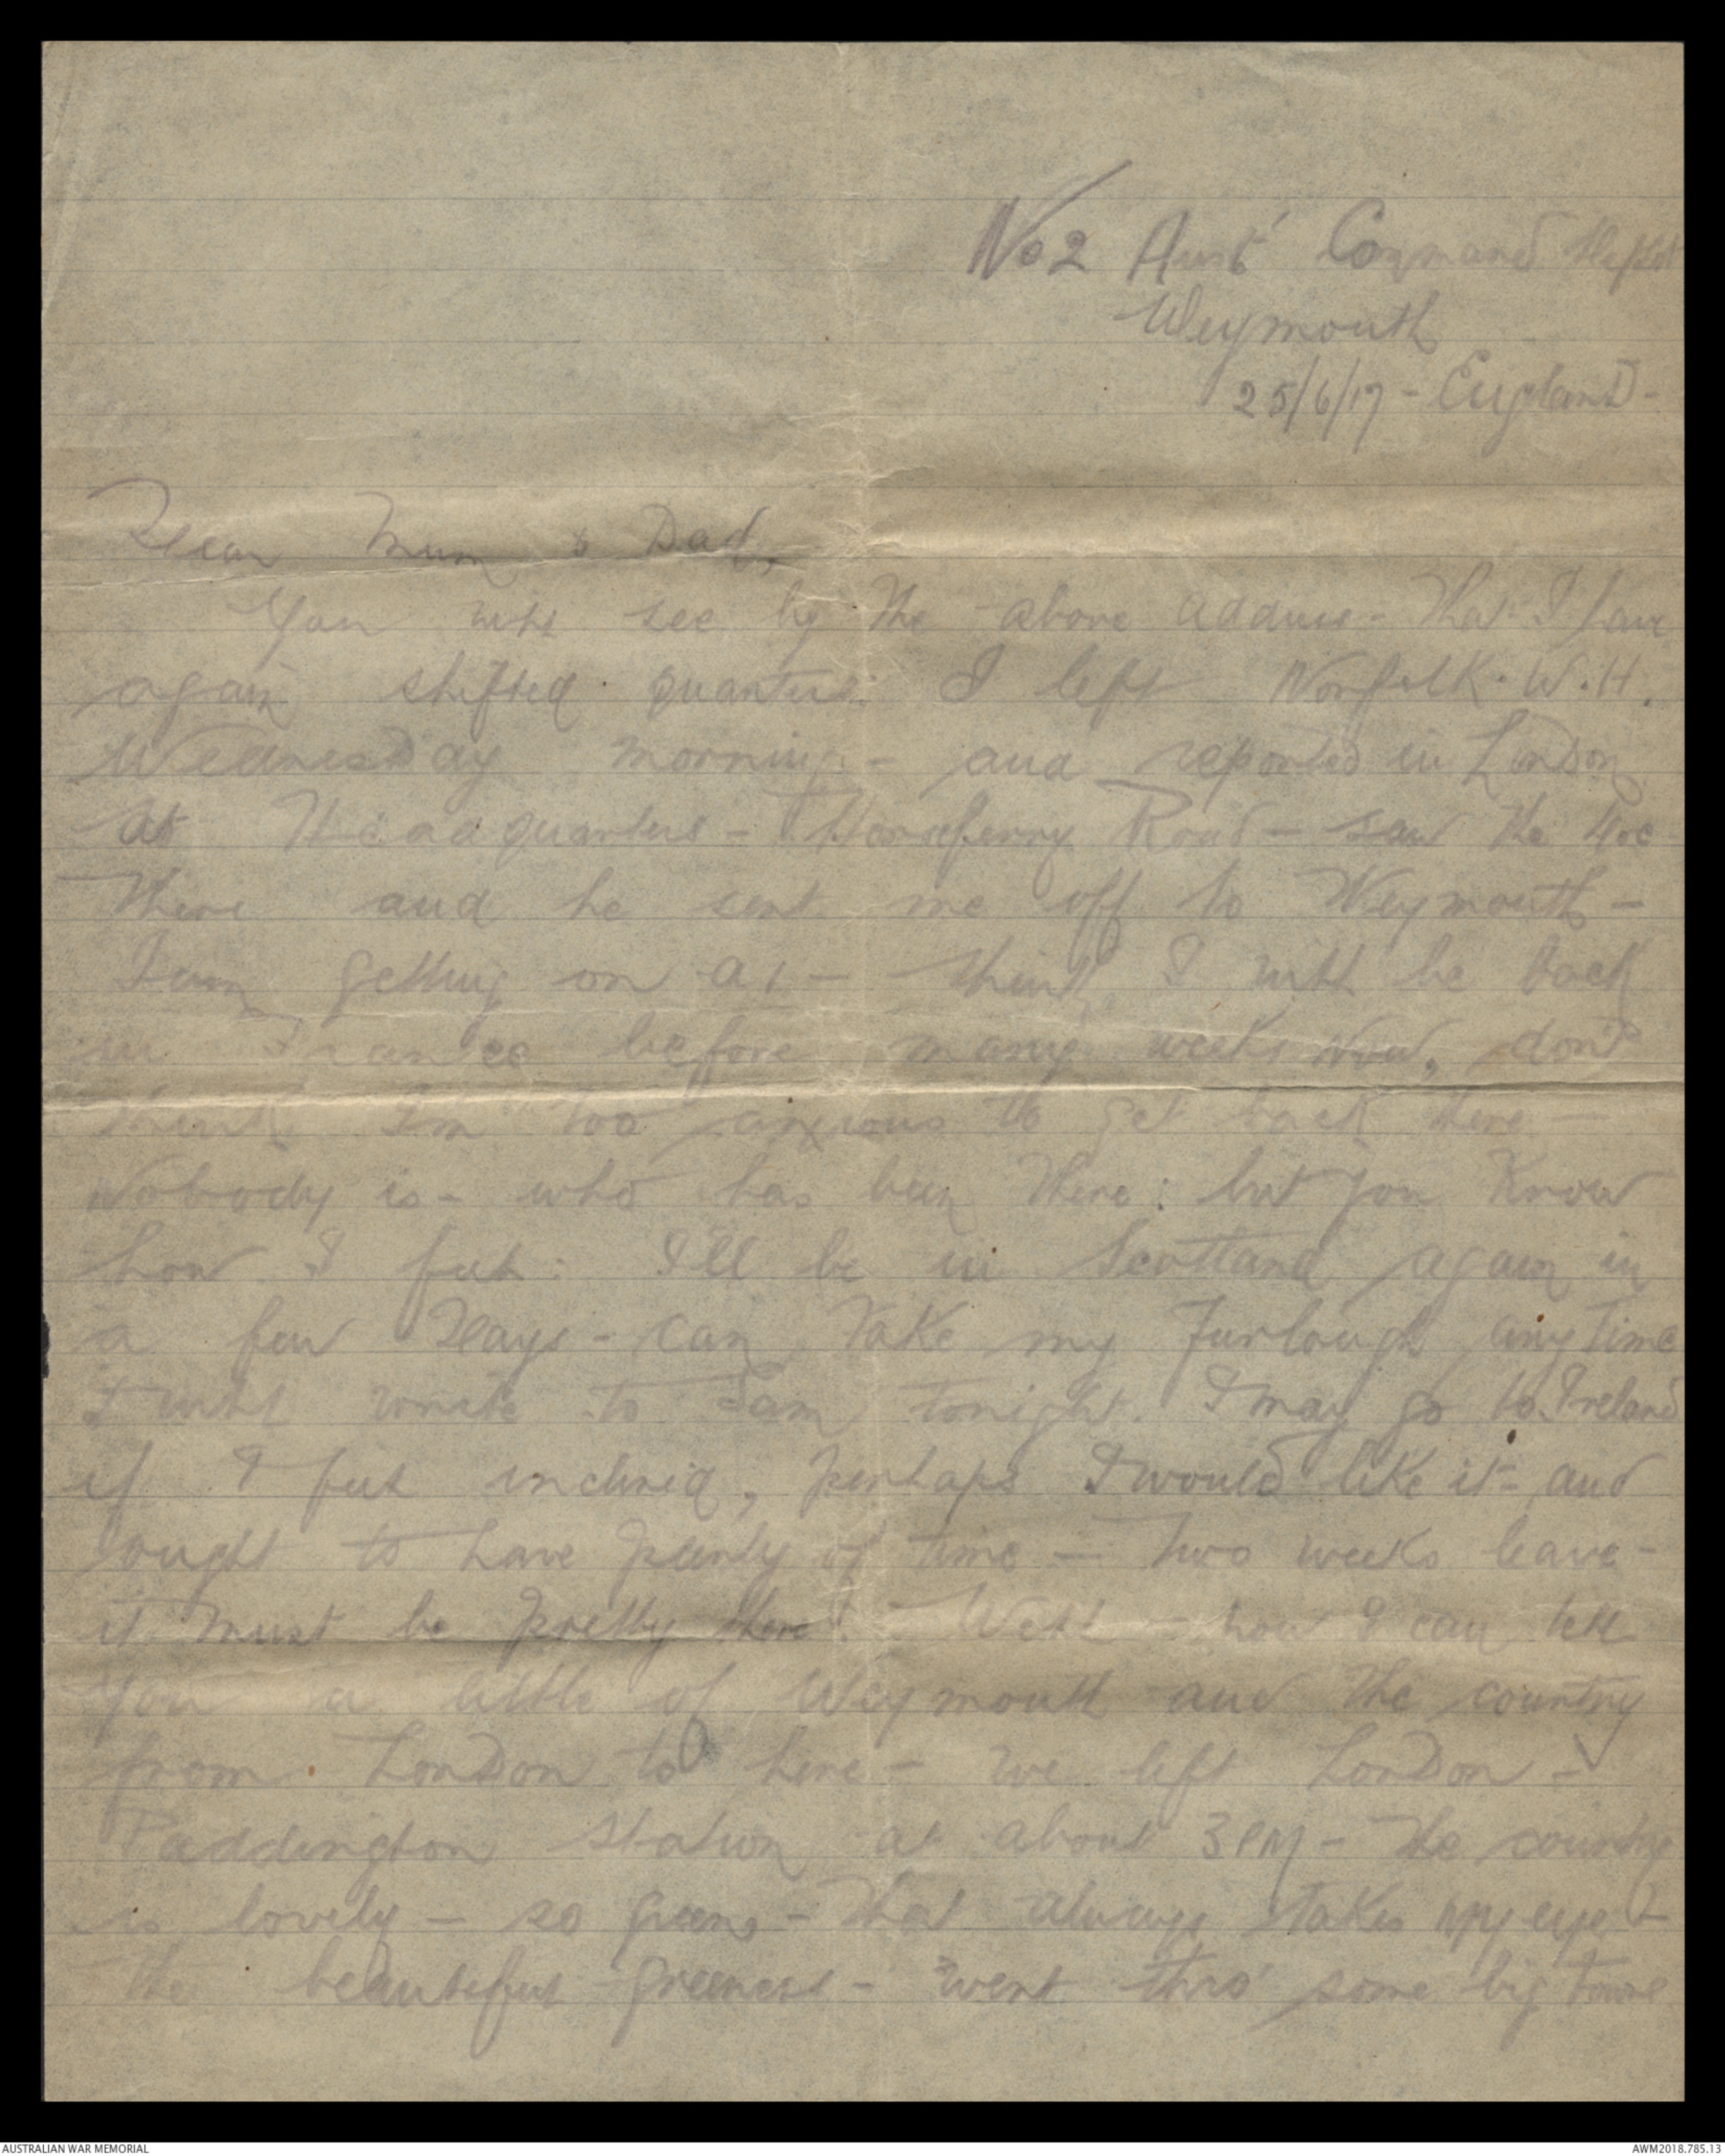 No 2 Aust Command Depot
Weymouth
25/6/17 - England -
Dear Mum & Dad,
You will see by the above address - that I have
again shifted quarters. I left Norfolk. W.H.
Wednesday morning - and reported in London
at Headquarters - Horseferry Road - saw the Doc
there and he sent me off to Weymouth -
I am getting on A1 - think I will be back
in France before many weeks now, don't
think I'm too anxious to get back there -
Nobody is - who has been there: but you know
how I feel: I'll be in Scotland again in
a few days - can take my Furlough any time
I will write to Sam tonight. I may go to Ireland
if I feel inclined, perhaps I would like it - and
ought to have plenty of time - two weeks leave -
it must be pretty there! - Well - now I can tell
you a little of Weymouth and the country
from London to here - we left London -
Paddington station at about 3PM - the country
is lovely - so green - that always takes my eye -
the beautiful greeness - went thro' some big towns
AUSTRALIAN WAR MEMORIAL
AWM2018.785.13